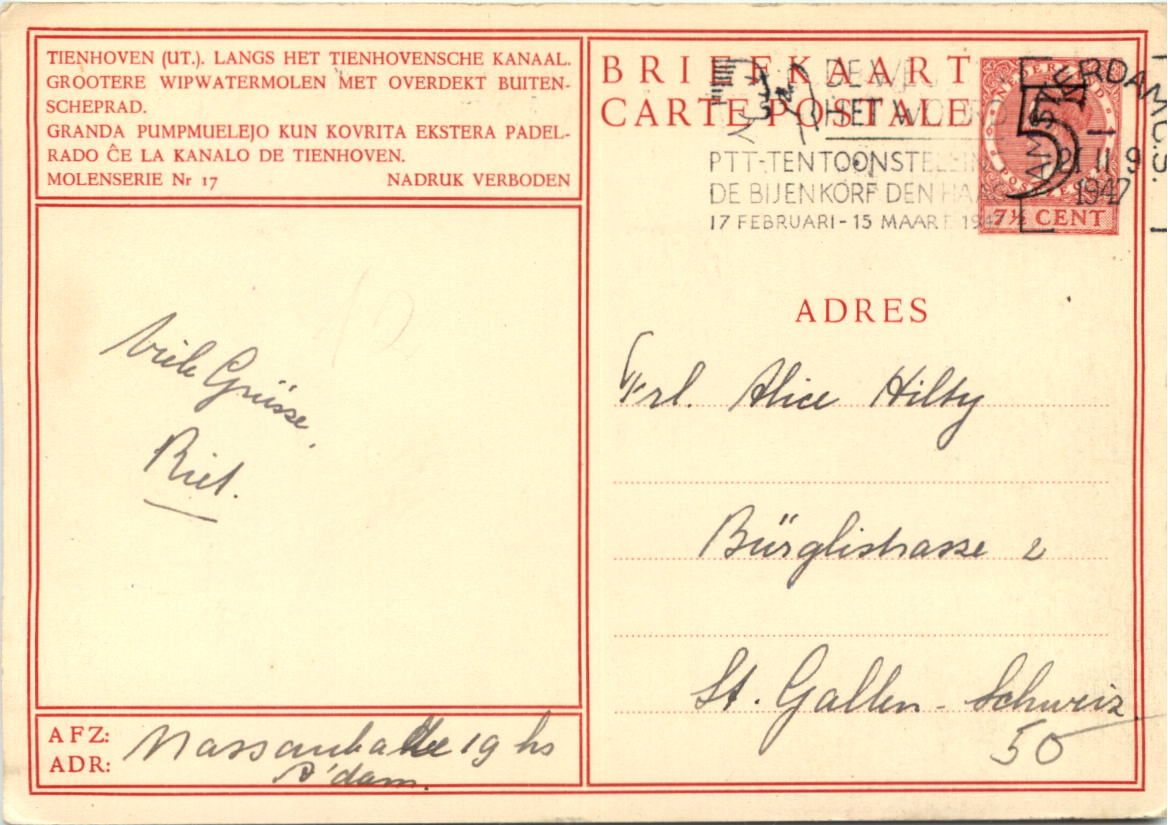 TIENHOVEN (UT.). LANGS HET TIENHOVENSCHE KANAAL.
GROOTERE WIPWATERMOLEN MET OVERDEKT BUITEN-
SCHEPRAD.
GRANDA PUMPMUELEJO KUN KOVRITA EKSTERA PADEL-
RADO ĈE LA KANALO DE TIENHOVEN.
MOLENSERIE Nr 17 NADRUK VERBODEN
Viele Grüsse,
Riet.
AFZ:
ADR:
Nassaukade 19 hs
A'dam.
BRIEFKAART
CARTE POSTALE
HET
PTT-TENTOONSTELLING
DE BIJENKORF DEN HAAG
17 FEBRUARI - 15 MAART 1947
NEDERLAND
5
POSTZEGEL
7½ CENT
AMSTERDAM C.S.
21 II 9
1947
ADRES
Frl. Alice Hilty
Bürglistrasse 2
St. Gallen - Schweiz
50